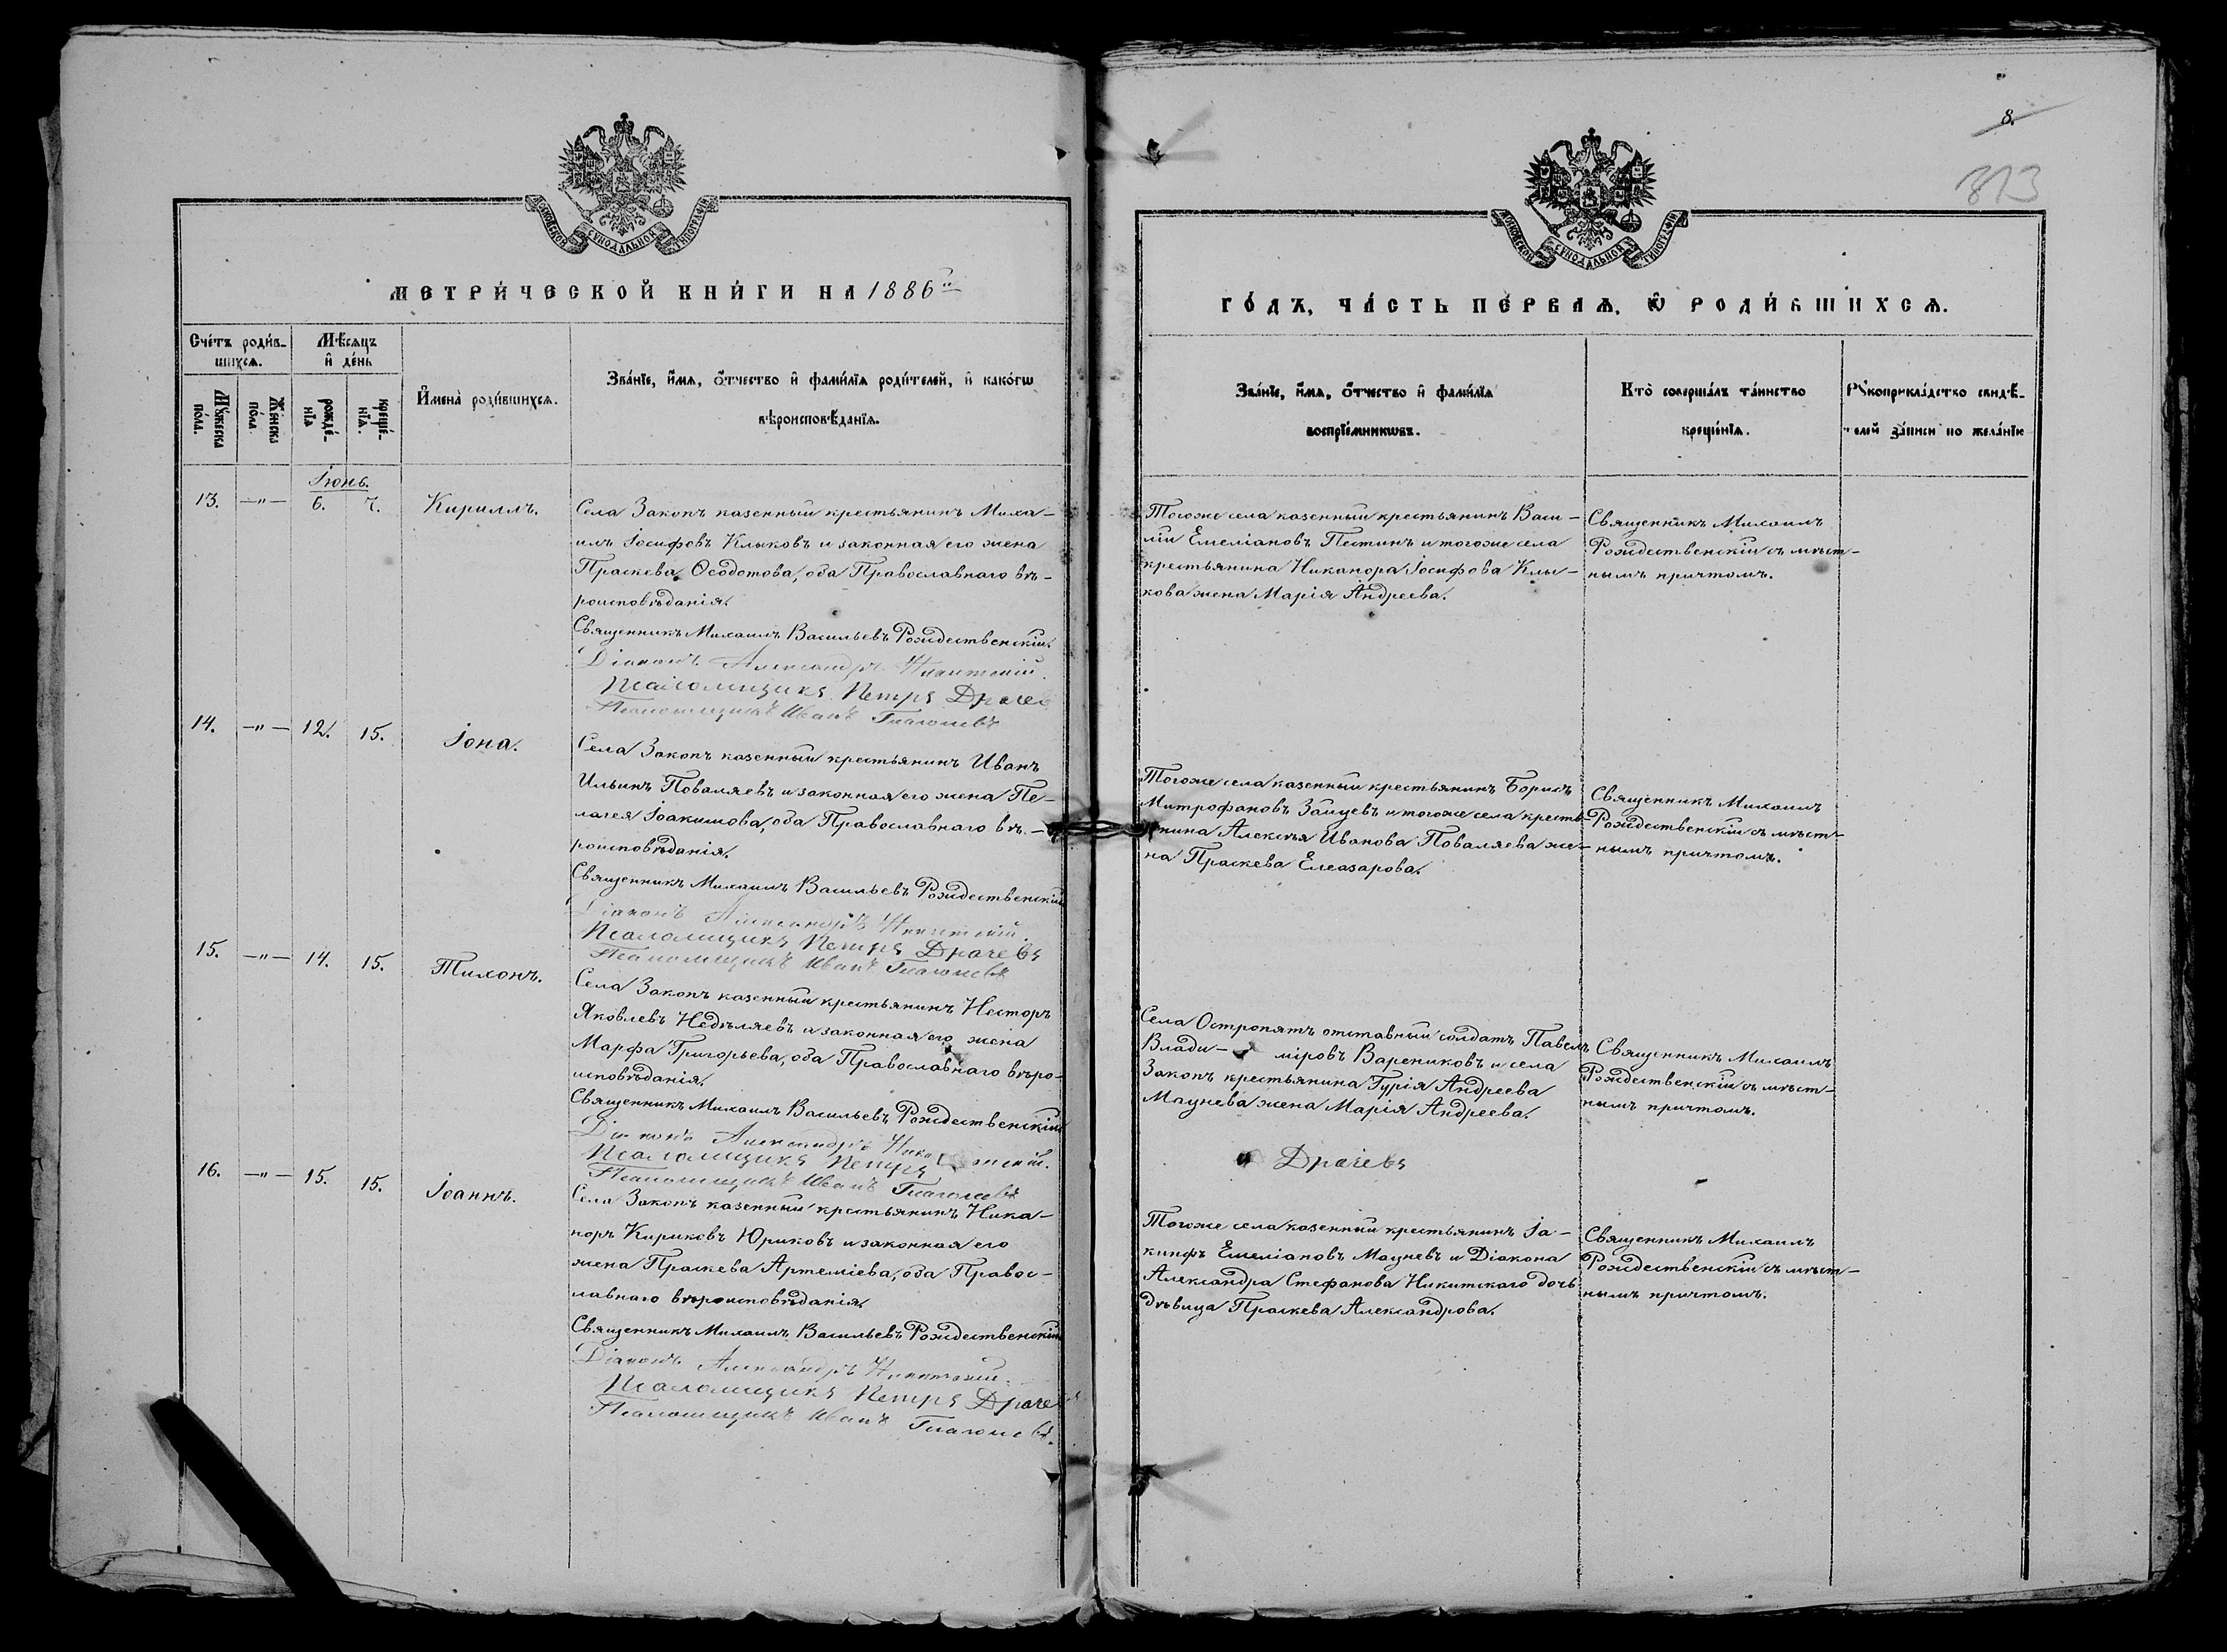 8.
813
МОСКОВСКОЙ СУНОДАЛЬНОЙ ТИПОГРАФІИ
МЕТРИ́ЧЕСКОЙ КНИ́ГИ НА 1886й
Сче́тъ роди́в-
шихсѧ.
Мѣ́сѧцъ
и҆ де́нь
Мꙋ́жеска по́ла.
Же́нска по́ла.
рожде́-нїѧ
креще́-нїѧ.
И҆мена̀ роди́вшихсѧ.
Зва́нїе, и҆́мѧ, ѻ҆́тчество и҆ фами́лїѧ роди́телей, и҆ како́гѡ
вѣроисповѣ́данїѧ.
Іюнь.
13. —"— 6. 7. Кириллъ.
Села Закопъ казенный крестьянинъ Миха-
илъ Іосифовъ Клыковъ и законная его жена
Праскева Ѳеодотова, оба Православнаго вѣ-
роисповѣданія.
Священникъ Михаилъ Васильевъ Рождественскій.
Діаконъ Александръ Никитскій.
Псаломщикъ Петръ Драчев
Псаломщикъ Иванъ Глаголевъ
14. —"— 12. 15. Іона.
Села Закопъ казенный крестьянинъ Иванъ
Ильинъ Поваляевъ и законная его жена Пе-
лагея Іоакимова, оба Православнаго вѣ-
роисповѣданія.
Священникъ Михаилъ Васильевъ Рождественскій
Діаконъ Александръ Никитскій.
Псаломщикъ Петръ Драчевъ
Псаломщикъ Иванъ Глаголевъ
15. —"— 14. 15. Тихонъ.
Села Закопъ казенный крестьянинъ Несторъ
Яковлевъ Недѣляевъ и законная его жена
Марфа Григорьева, оба Православнаго вѣро-
исповѣданія.
Священникъ Михаилъ Васильевъ Рождественскій
Діаконъ Александръ Никитскій.
Псаломщикъ Петръ
Псаломщикъ Иванъ Глаголевъ
16. —"— 15. 15. Іоаннъ.
Села Закопъ казенный крестьянинъ Ника-
норъ Кириковъ Юриковъ и законная его
жена Праскева Артеміева, оба Правос-
лавнаго вѣроисповѣданія.
Священникъ Михаилъ Васильевъ Рождественскій
Діаконъ Александръ Никитскій.
Псаломщикъ Петръ Драче
Псаломщикъ Иванъ Глаголевъ.
МОСКОВСКОЙ СУНОДАЛЬНОЙ ТИПОГРАФІИ
ГО́ДЪ, ЧА́СТЬ ПЕ́РВАѦ, Ѡ҆ РОДИ́ВШИХСѦ.
Зва́нїе, и҆́мѧ, ѻ҆́тчество и҆ фами́лїѧ
воспрїе́мникѡвъ.
Кто̀ соверша́лъ та́инство
креще́нїѧ.
Рꙋкоприкла́дство свидѣ́-
телей за́писи по жела́нїю
Тогоже села казенный крестьянинъ Васи-
лій Емеліановъ Пестинъ и тогоже села
крестьянина Никанора Іосифова Клы-
кова жена Марія Андреева.
Священникъ Михаилъ
Рождественскій съ мѣст-
нымъ причтомъ.
Тогоже села казенный крестьянинъ Борисъ
Митрофановъ Зайцевъ и тогоже села кресть-
янина Алексѣя Иванова Поваляева же-
на Праскева Елеазарова.
Священникъ Михаилъ
Рождественскій съ мѣст-
нымъ причтомъ.
Села Остропятъ отставный солдатъ Павелъ
Влади- міровъ Варениковъ и села
Закопъ крестьянина Гурія Андреева
Мацнева жена Марія Андреева.
Священникъ Михаилъ
Рождественскій съ мѣст-
нымъ причтомъ.
Драчевъ
Тогоже села казенный крестьянинъ Іа-
кинфъ Емеліановъ Мацневъ и Діакона
Александра Стефанова Никитскаго дочь
дѣвица Праскева Александрова.
Священникъ Михаилъ
Рождественскій съ мѣст-
нымъ причтомъ.